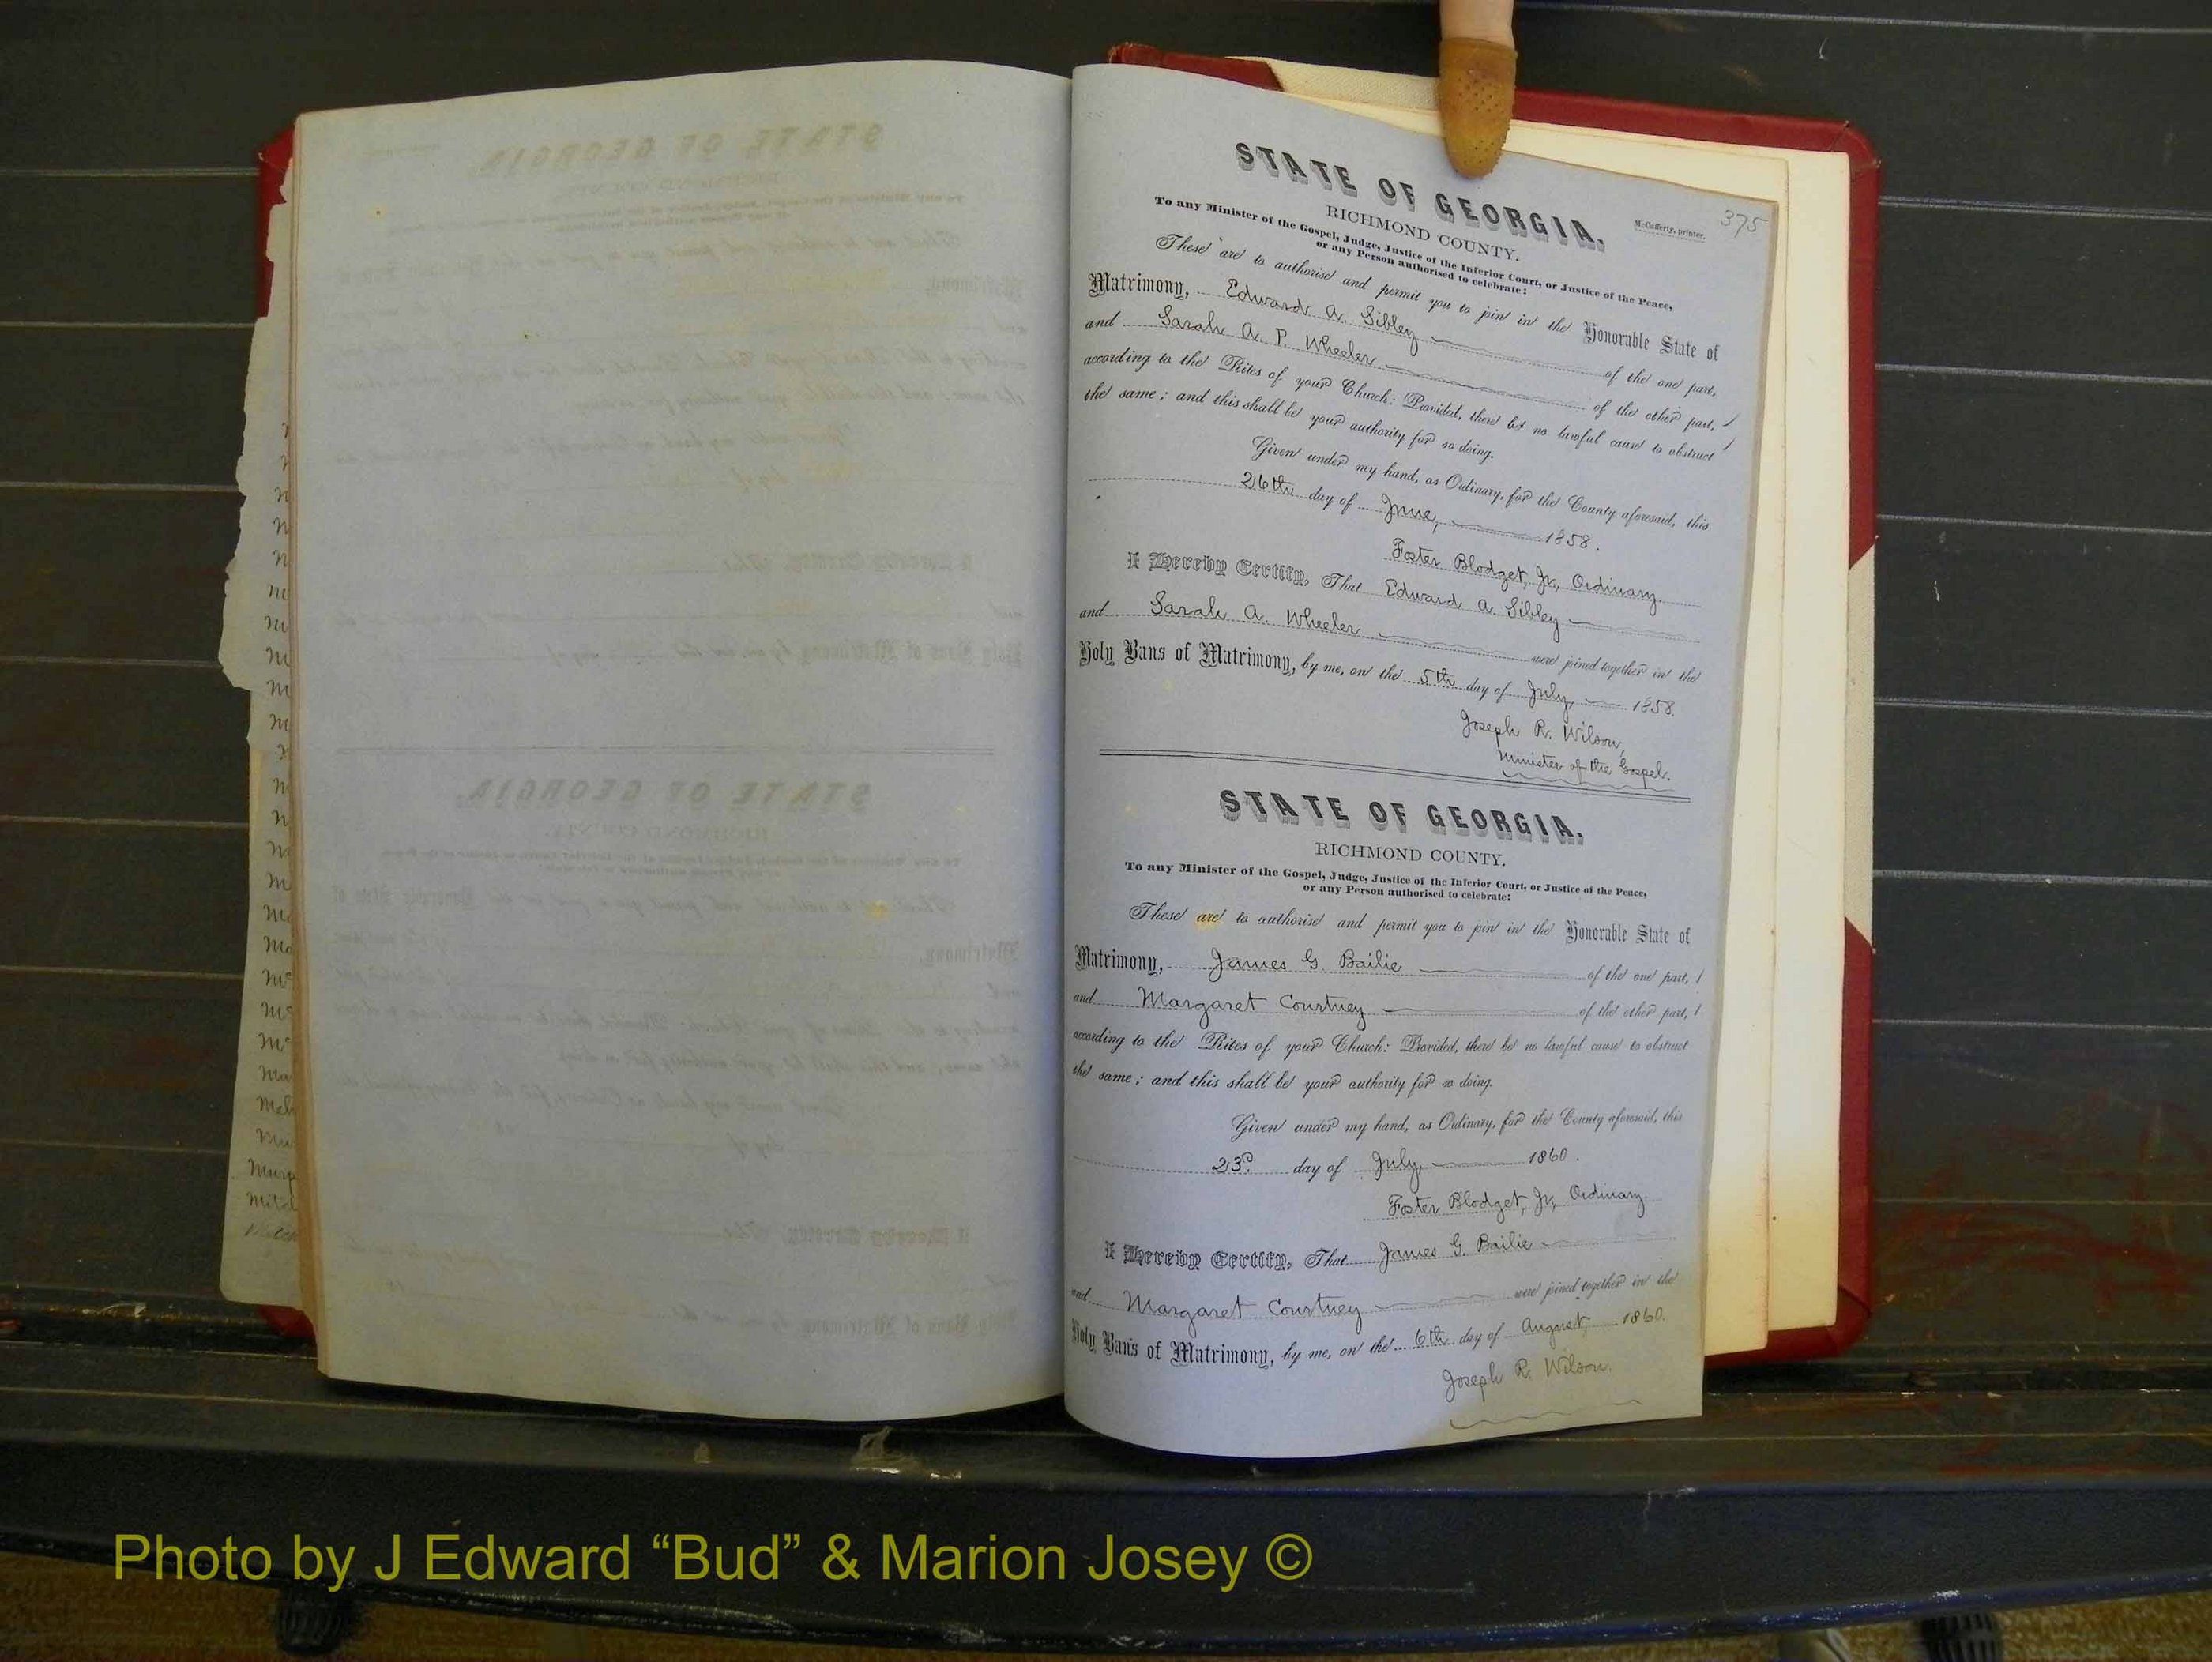 375
STATE OF GEORGIA.
McCafferty, printer.
RICHMOND COUNTY.
To any Minister of the Gospel, Judge, Justice of the Inferior Court, or Justice of the Peace,
or any Person authorised to celebrate:
These are to authorise and permit you to join in the Honorable State of
Matrimony, Edward A. Sibley of the one part,
and Sarah A. P. Wheeler of the other part,
according to the Rites of your Church: Provided, there be no lawful cause to obstruct
the same; and this shall be your authority for so doing.
Given under my hand, as Ordinary, for the County aforesaid, this
26th day of June, 1858.
Foster Blodget, Jr., Ordinary.
I Hereby Certify, That Edward A. Sibley
and Sarah A. Wheeler were joined together in the
Holy Bans of Matrimony, by me, on the 5th day of July, 1858.
Joseph R. Wilson,
Minister of the Gospel.
STATE OF GEORGIA.
RICHMOND COUNTY.
To any Minister of the Gospel, Judge, Justice of the Inferior Court, or Justice of the Peace,
or any Person authorised to celebrate:
These are to authorise and permit you to join in the Honorable State of
Matrimony, James G. Bailie of the one part,
and Margaret Courtney of the other part,
according to the Rites of your Church: Provided, there be no lawful cause to obstruct
the same; and this shall be your authority for so doing.
Given under my hand, as Ordinary, for the County aforesaid, this
23d day of July, 1860.
Foster Blodget, Jr., Ordinary.
I Hereby Certify, That James G. Bailie
and Margaret Courtney were joined together in the
Holy Bans of Matrimony, by me, on the 6th day of August, 1860.
Joseph R. Wilson.
Photo by J Edward “Bud” & Marion Josey ©